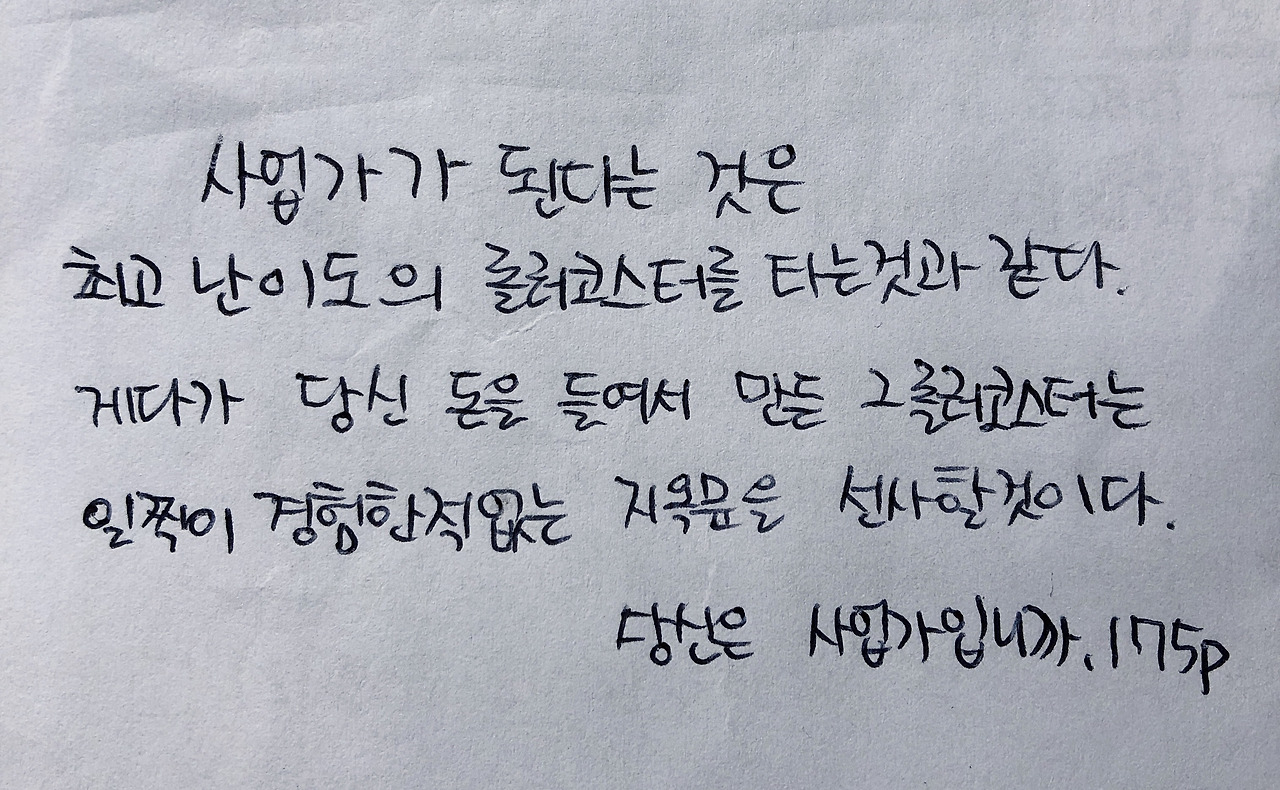 사업가가 된다는 것은
최고 난이도의 롤러코스터를 타는것과 같다.
게다가 당신 돈을 들여서 만든 그롤러코스터는
일찍이 경험한적없는 지옥문을 선사할것이다.
당신은 사업가입니까. 175p